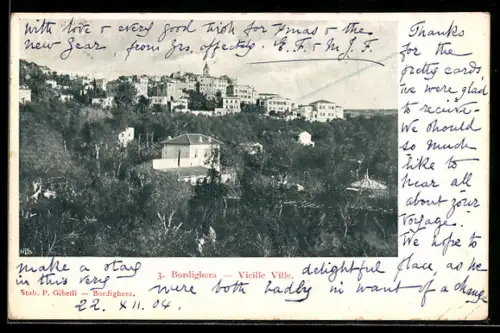 with love & every good wish for Xmas & the
new year, from yrs. affectly. E. F. & M. J. F.
Thanks
for the
pretty cards,
we were glad
to receive.
We should
so much
like to
hear all
about your
voyage.
We hope to
make a stay
in this very
delightful place, as we
were both badly in want of a change
22. XII. 04.
3. Bordighera — Vieille Ville.
Stab. P. Gibelli — Bordighera.